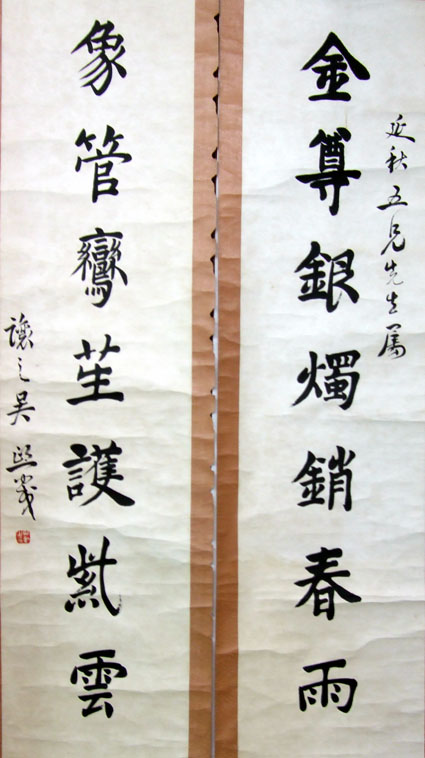 延秋五兄先生属
金尊銀燭銷春雨
象管鸞笙護紫雲
讓之吴熙載